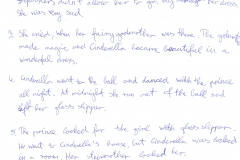 stepsisters didn't allow her to go, my
She was very sad.
3. She cried, when her fairy godmother was there. The
made magic and Cinderella became beautiful in a
wonderful dress.
4. Cinderella went to the ball and danced with the prince
all night. At midnight she run out of the ball and
left her glass slipper.
5. The prince looked for the girl with glass slipper.
He went to Cinderella's house, but Cinderella was locked
in a room. Her stepmother locked her.